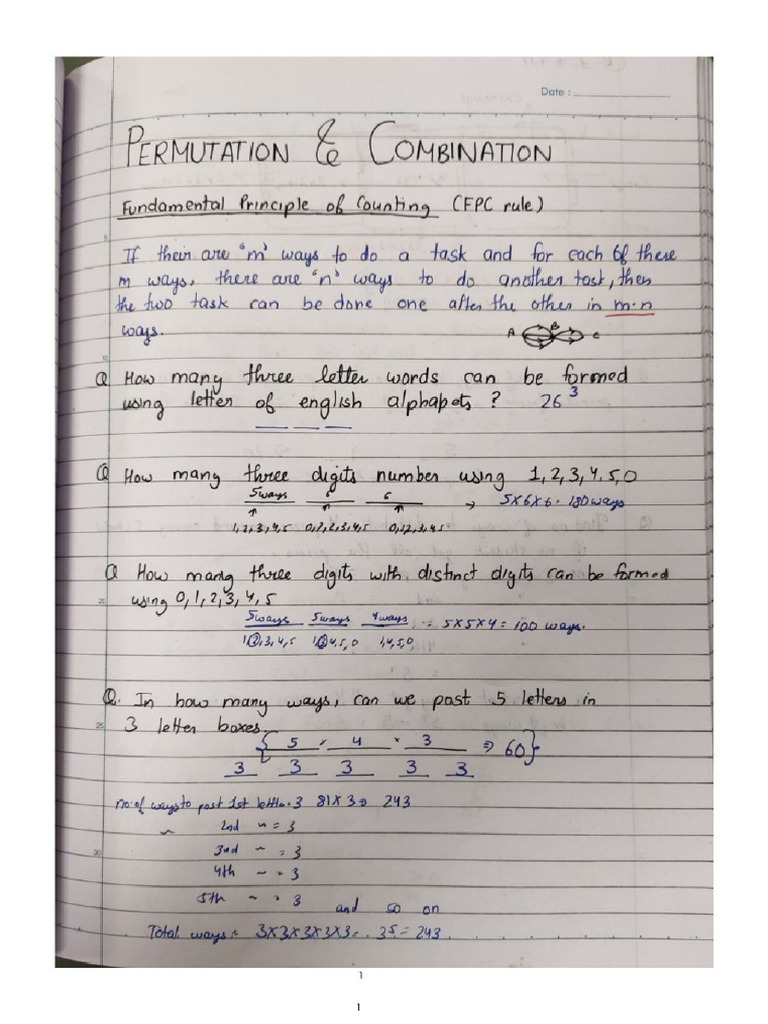 Date :
PERMUTATION & COMBINATION
Fundamental Principle of Counting (FPC rule)
If their are 'm' ways to do a task and for each of these
m ways, there are 'n' ways to do another task, then
the two task can be done one after the other in m·n
ways.
A B C
Q How many three letter words can be formed
using letter of english alphabets ? 26³
Q How many three digits number using 1,2,3,4,5,0
5ways 6 6 → 5×6×6 = 180 ways
1,2,3,4,5 0,1,2,3,4,5 0,1,2,3,4,5
Q How many three digits with distinct digits can be formed
using 0,1,2,3,4,5
5ways 5ways 4ways = 5×5×4 = 100 ways.
1,2,3,4,5 1,3,4,5,0 1,4,5,0
Q. In how many ways, can we post 5 letters in
3 letter boxes.
{ 5 × 4 × 3 ⇒ 60}
3 3 3 3 3
no: of ways to post 1st letter = 3 81×3 = 243
~ 2nd ~ = 3
3rd ~ = 3
4th ~ = 3
5th ~ = 3
and so on
Total ways = 3×3×3×3×3 = 3⁵ = 243.
1
1